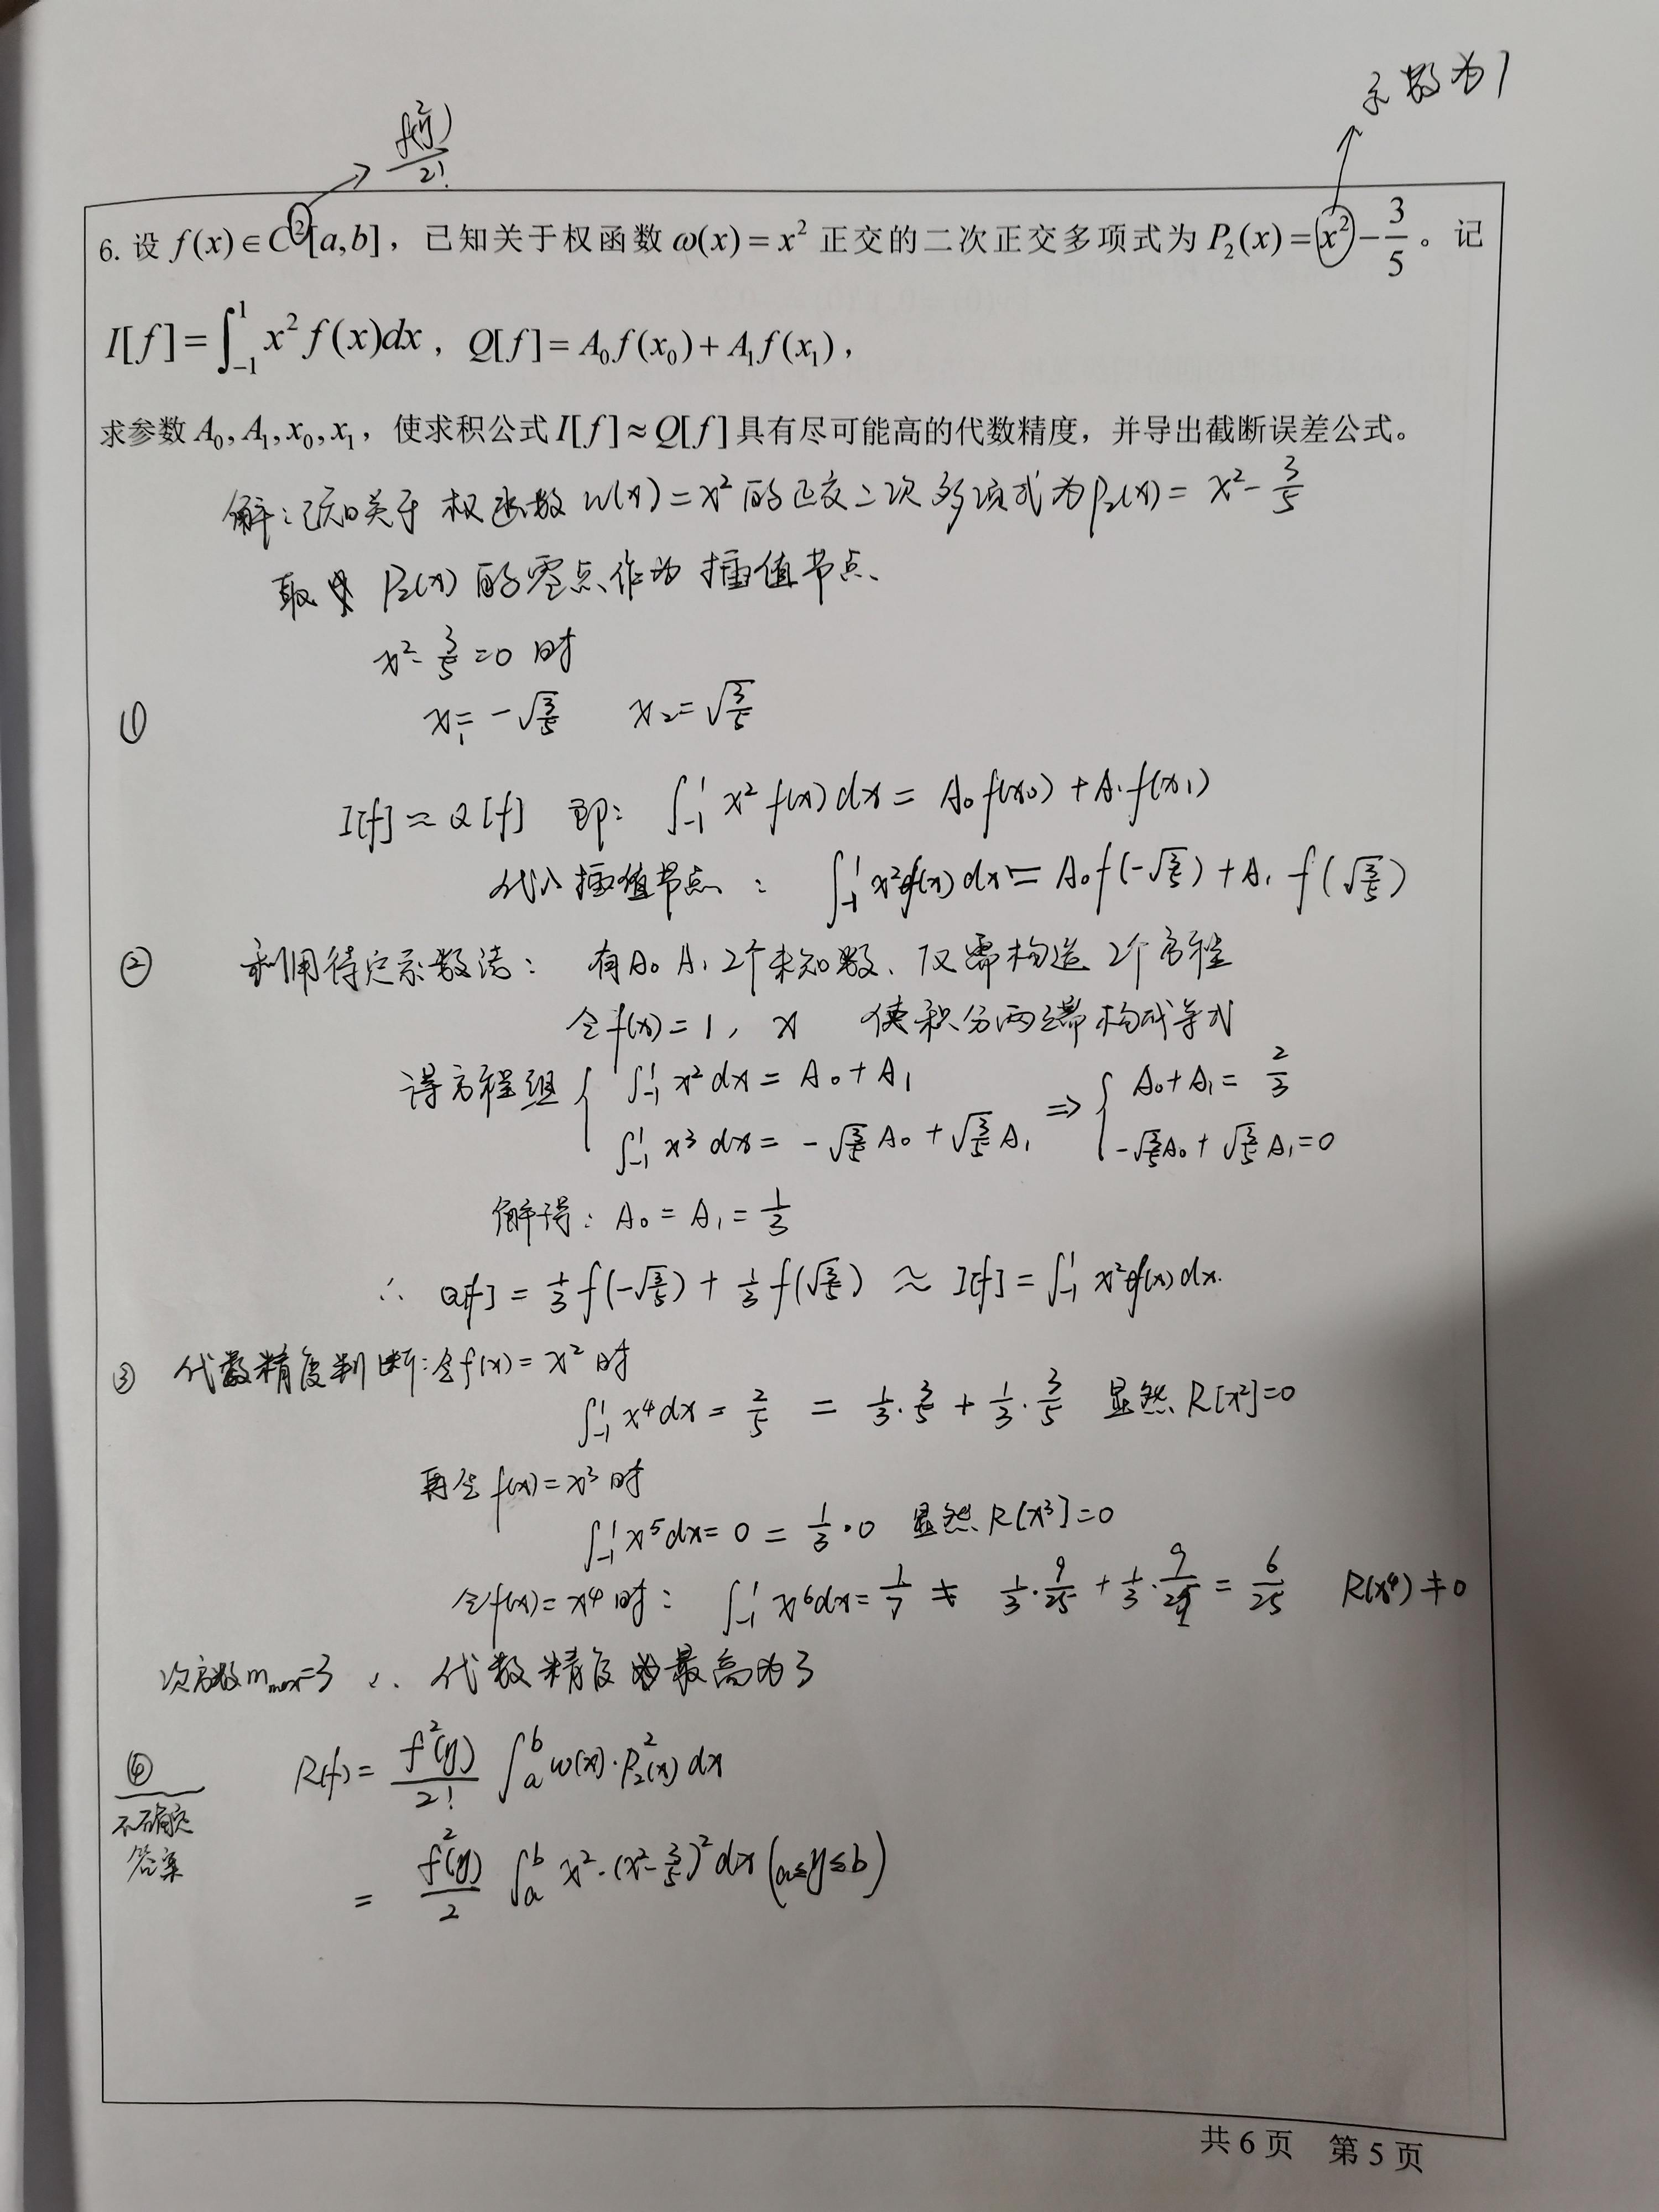 系数为1
f²(y)/2!
6. 设 f(x)∈C²[a,b]，已知关于权函数 ω(x)=x² 正交的二次正交多项式为 P₂(x)=x²−3/5。记
I[f]=∫₋₁¹ x² f(x)dx，Q[f]=A₀f(x₀)+A₁f(x₁)，
求参数 A₀,A₁,x₀,x₁，使求积公式 I[f]≈Q[f] 具有尽可能高的代数精度，并导出截断误差公式。
解：已知关于 权函数 w(x)=x² 的正交二次多项式为 P₂(x)= x²-3/5
取 P₂(x) 的零点作为 插值节点、
x²-3/5=0 时
① x₁=-√(3/5) x₂=√(3/5)
I[f]≈Q[f] 即： ∫₋₁¹ x² f(x) dx = A₀ f(x₀) + A₁ f(x₁)
代入插值节点： ∫₋₁¹ x² f(x) dx = A₀ f(-√(3/5)) + A₁ f(√(3/5))
② 利用待定系数法： 有A₀ A₁ 2个未知数、仅需构造 2个方程
令 f(x)=1, x 使积分两端构成等式
得方程组 { ∫₋₁¹ x² dx = A₀+A₁ ⇒ { A₀+A₁= 2/3
∫₋₁¹ x³ dx = -√(3/5) A₀ + √(3/5) A₁ -√(3/5)A₀+ √(3/5) A₁=0
解得： A₀ = A₁ = 1/3
∴ Q[f] = 1/3 f(-√(3/5)) + 1/3 f(√(3/5)) ≈ I[f] = ∫₋₁¹ x² f(x) dx.
③ 代数精度判断：令f(x)= x² 时
∫₋₁¹ x⁴ dx = 2/5 = 1/3·3/5 + 1/3·3/5 显然 R[x²]=0
再令 f(x)=x³ 时
∫₋₁¹ x⁵ dx= 0 = 1/3·0 显然 R[x³]=0
令f(x)= x⁴ 时： ∫₋₁¹ x⁶dx=1/7 ≠ 1/3·9/25 + 1/3·9/25 = 6/25 R(x⁴)≠0
次方数 m_max=3 ∴ 代数精度最高为3
④ R(f)= f²(y)/2! ∫ₐᵇ w(x)·P₂²(x) dx
不确定
答案
= f²(y)/2 ∫ₐᵇ x²·(x²-3/5)² dx (a≤y≤b)
共 6 页 第 5 页